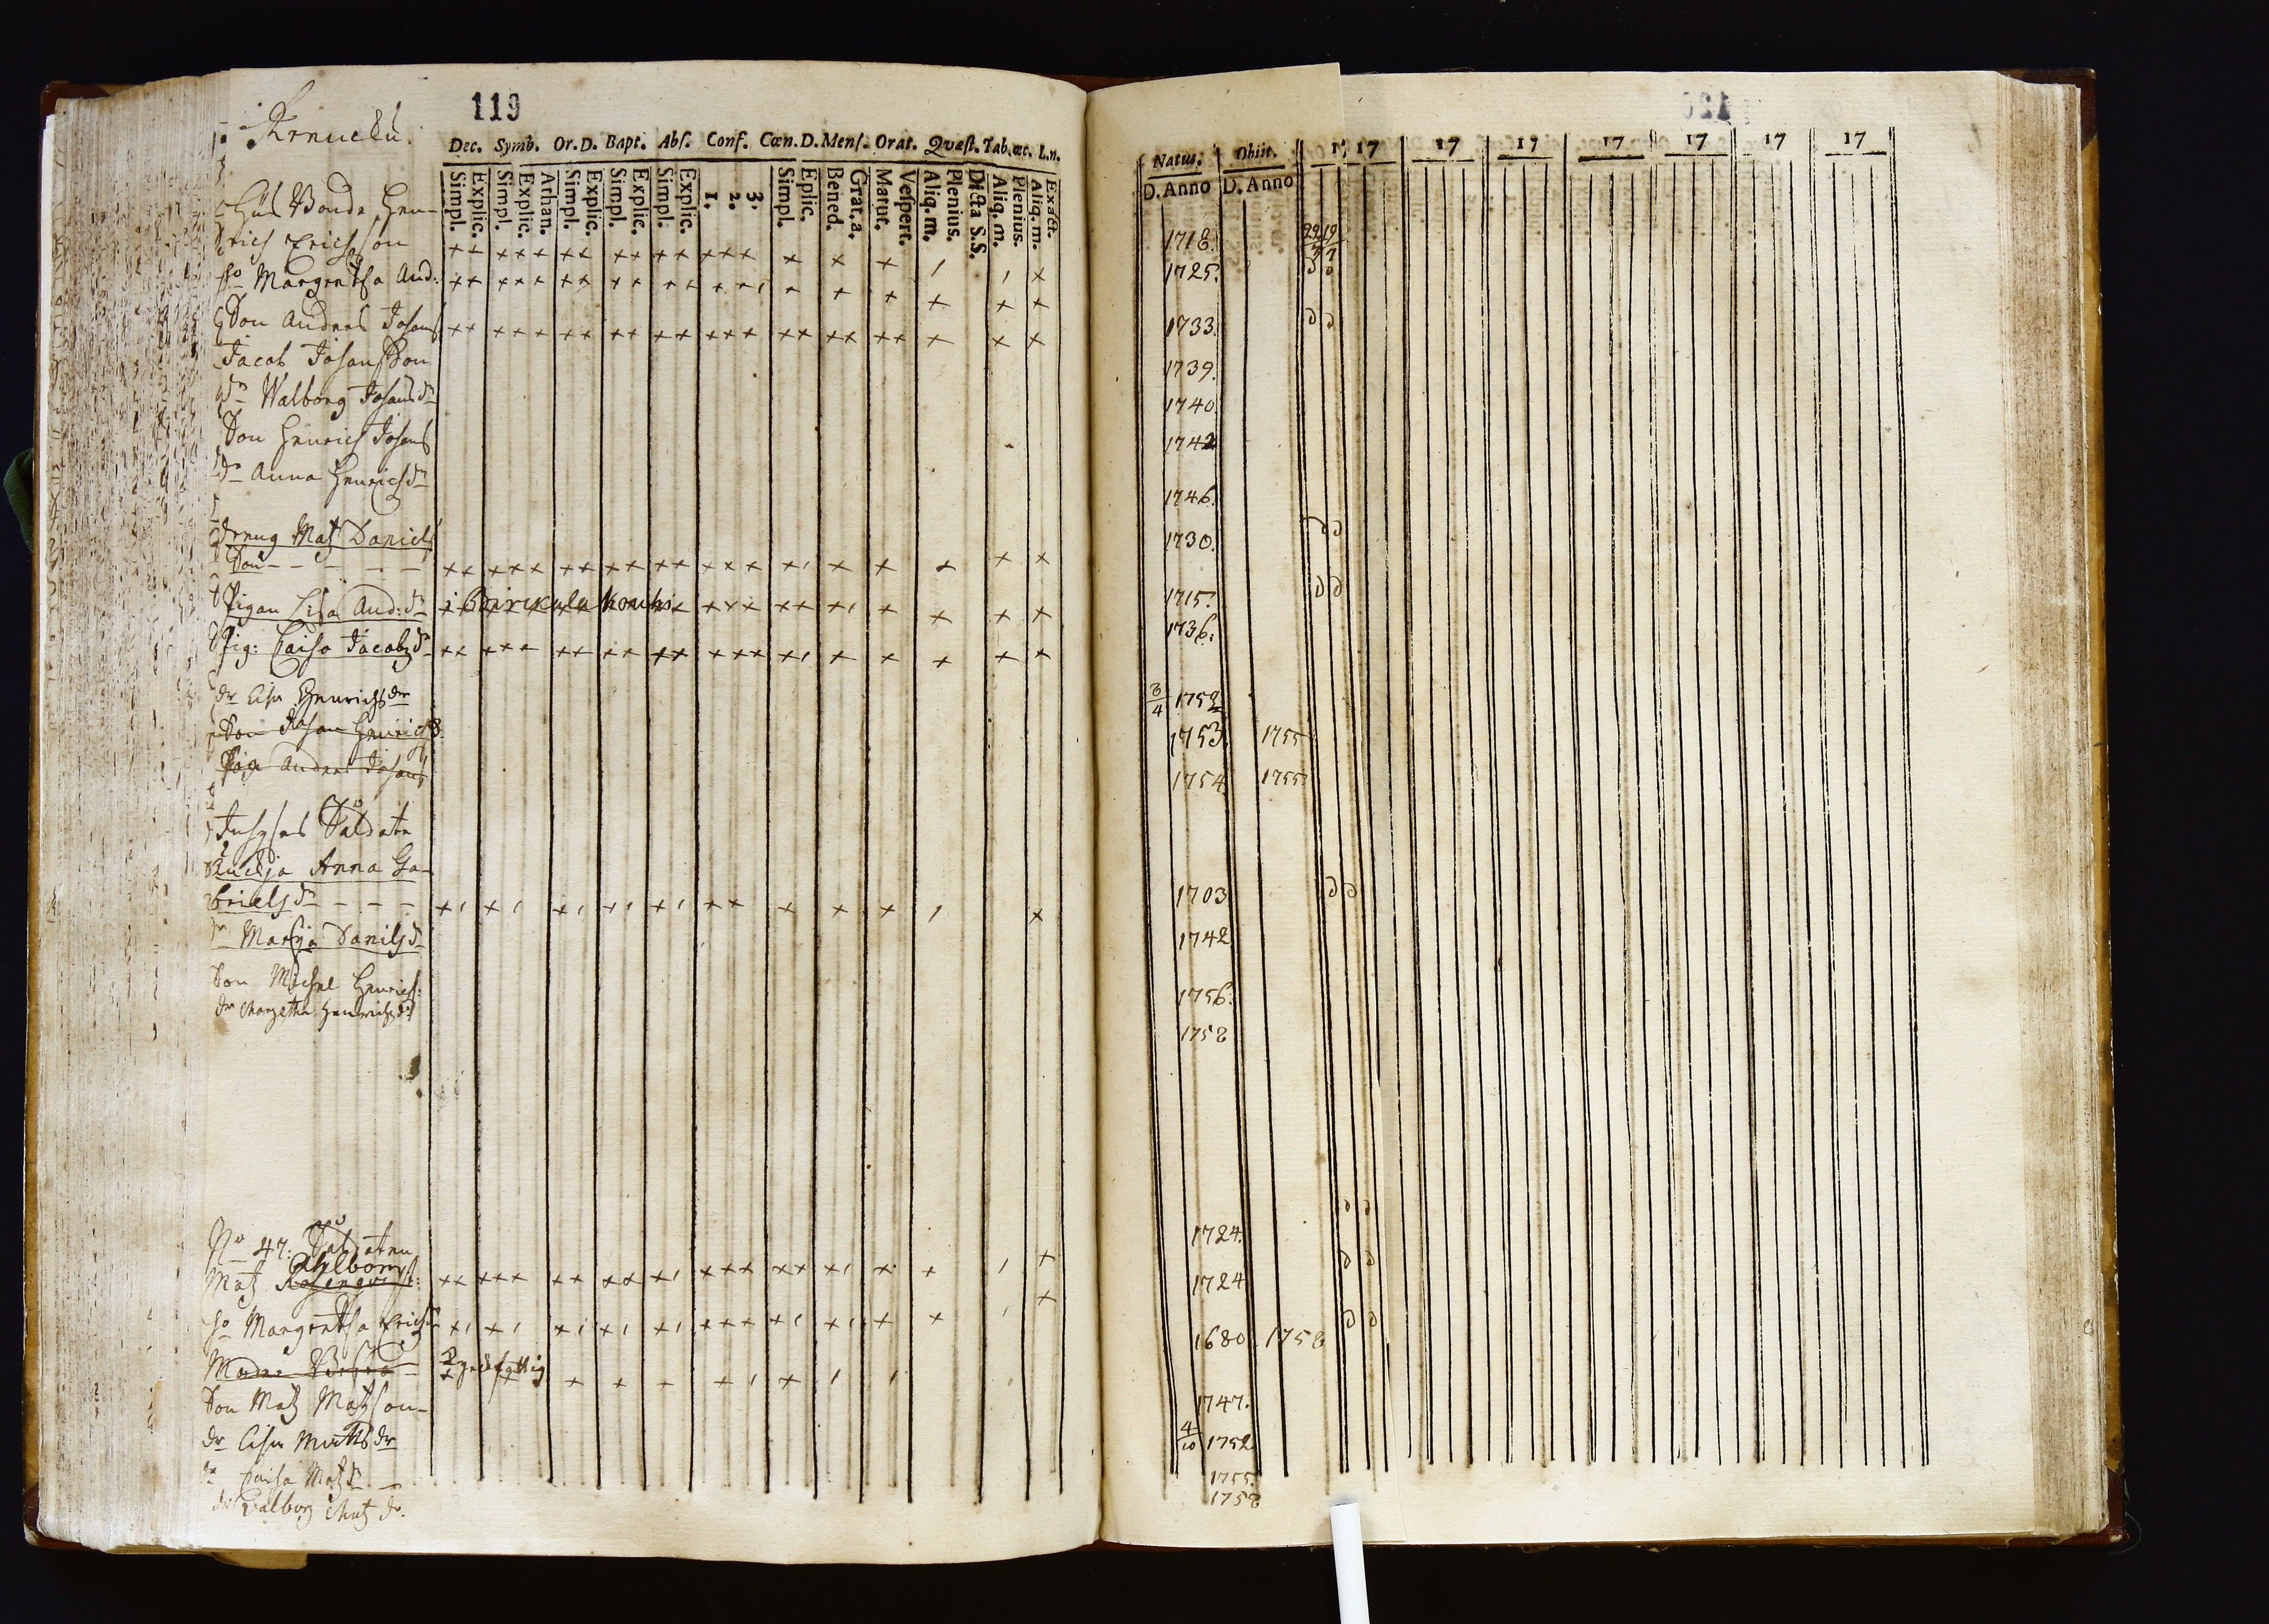 119
Dec. Symb. Or. D. Bapt. Abſ. Conf. Cœn. D. Menſ. Orat. Qvæſt. Tab. œc. L.n.
Simpl. Explic. Simpl. Explic. Athan. Simpl. Explic. Simpl. Explic. Simpl. Explic. 1. 2. 3. Simpl. Eplic. Bened. Grat. a. Matut. Veſpert. Aliq. m. Plenius. Dicta S.S. Aliq. m. Plenius. Aliq. m. Exact.
Natus. Obiit. 17 17 17 17 17 17 17
D. Anno D. Anno
Bonde Hen-
rich Erichson 1718.
Margretha And: 1725.
Son Anders Johans 1733.
Jacob Johansson 1739.
dr Walborg Johansdr 1740.
Son Henrich Johans 1742
dr Anna Henrichsdr 1746.
dreng Mats Daniels
Son 1730.
Pigan Lisa And: dr 1715.
Pig: Caisa Jacobsdr 1736.
dr Lisa Henrichsdr 1752
Son Johan Henrichs 1753. 1755
Anders Johans 1754 1755.
Inhyses Soldate
Änckja Anna Ga-
brielsdr 1703
dr Marija Danilsdr 1742
Son Michel Henrichs: 1756.
dr Margetha Henrichsdr 1758
No 47: Soldaten 1724.
Ahlbom
Mats 1724
Margretha Erichsdr 1680 1758
Son Mats Matsson 1747.
dr Lisa Mattsdr 4/10 1752
dr Caisa Matsdr 1755.
dr Valborg Matsdr. 1758